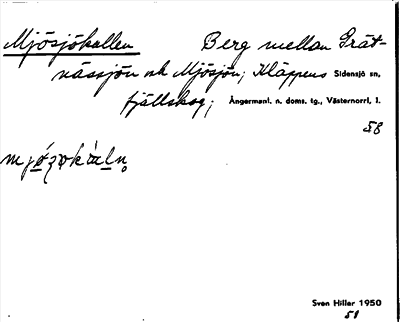 Mjösjökallen Berg mellan Grät-
nässjön och Mjösjön; Kläppens Sidensjö sn,
fjällskog; Ångermanl. n. doms. tg., Västernorrl. l.
58
Sven Hiller 1950
51